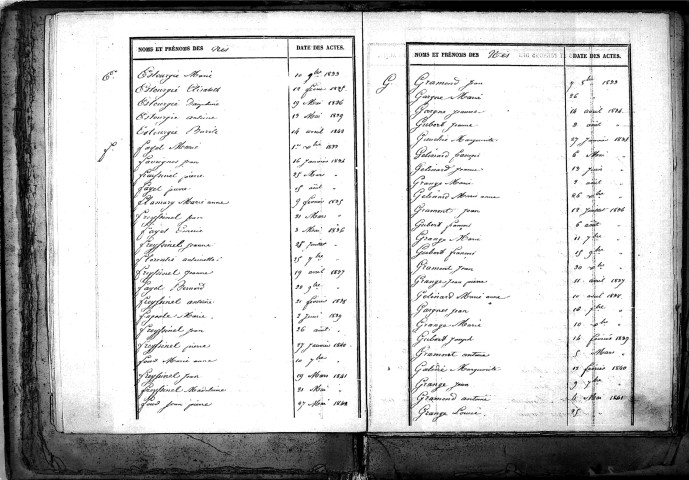 NOMS ET PRÉNOMS DES Nés DATE DES ACTES.
E
Estourgié Marie 10 9bre 1833
Estourgié Elisabeth 12 février 1835
Estourgié Dauphine 19 Mai 1836
Estourgié antoine 13 Mai 1839
Estourgié 14 avril 1842
F
Fayel Marie 1er xbre 1833
jean 16 Janvier 1834
Freyssinel pierre 25 Mars "
Fayel 15 août "
Flamary Marie anne 9 février 1835
Freyssinel jean 21 Mars "
Fayet 3 Mai 1836
Freyssinel Jeanne 25 Juillet "
Florentie antoinette 25 7bre "
Freyssinel Jeanne 19 avril 1837
Fayel Bernard 20 9bre "
Freyssinel antoine 21 février 1838
Marie 2 Juin 1839
Freyssinel jean 26 août "
Freyssinel pierre 27 Janvier 1840
Marie anne 10 7bre "
Freyssinel Jean 19 Mars 1841
Freyssinel Madeleine 21 Mai "
Jean pierre 27 Mai 1842
NOMS ET PRÉNOMS DES Nés DATE DES ACTES.
G
Gramond Jean 9 8bre 1833
Gargne Marie 26
Gargne Jeanne 14 avril 1834
Guibert Jeanne 2 août "
Marguerite 27 Janvier 1835
Galinard 6 Mai "
Galinard Jeanne 13 Juin "
Grange Marie 2 août "
Galinard Marie anne 26 xbre "
Gramont Jean 12 Juillet 1836
Guibert 6 août "
Grange Marie 11 7bre "
Guibert 15 9bre "
Gramont Jean 20 xbre "
Grange Jean pierre 11 avril 1837
Galinard Marie anne 10 avril 1838
Gargnes Jean 16 7bre "
Grange Marie 10 xbre "
Guibert 14 février 1839
Gramont antoine 5 Mars "
Marguerite 17 février 1840
Grange Jean 9 7bre "
Gramond antoine 4 Mai 1841
Grange Louise 25 "